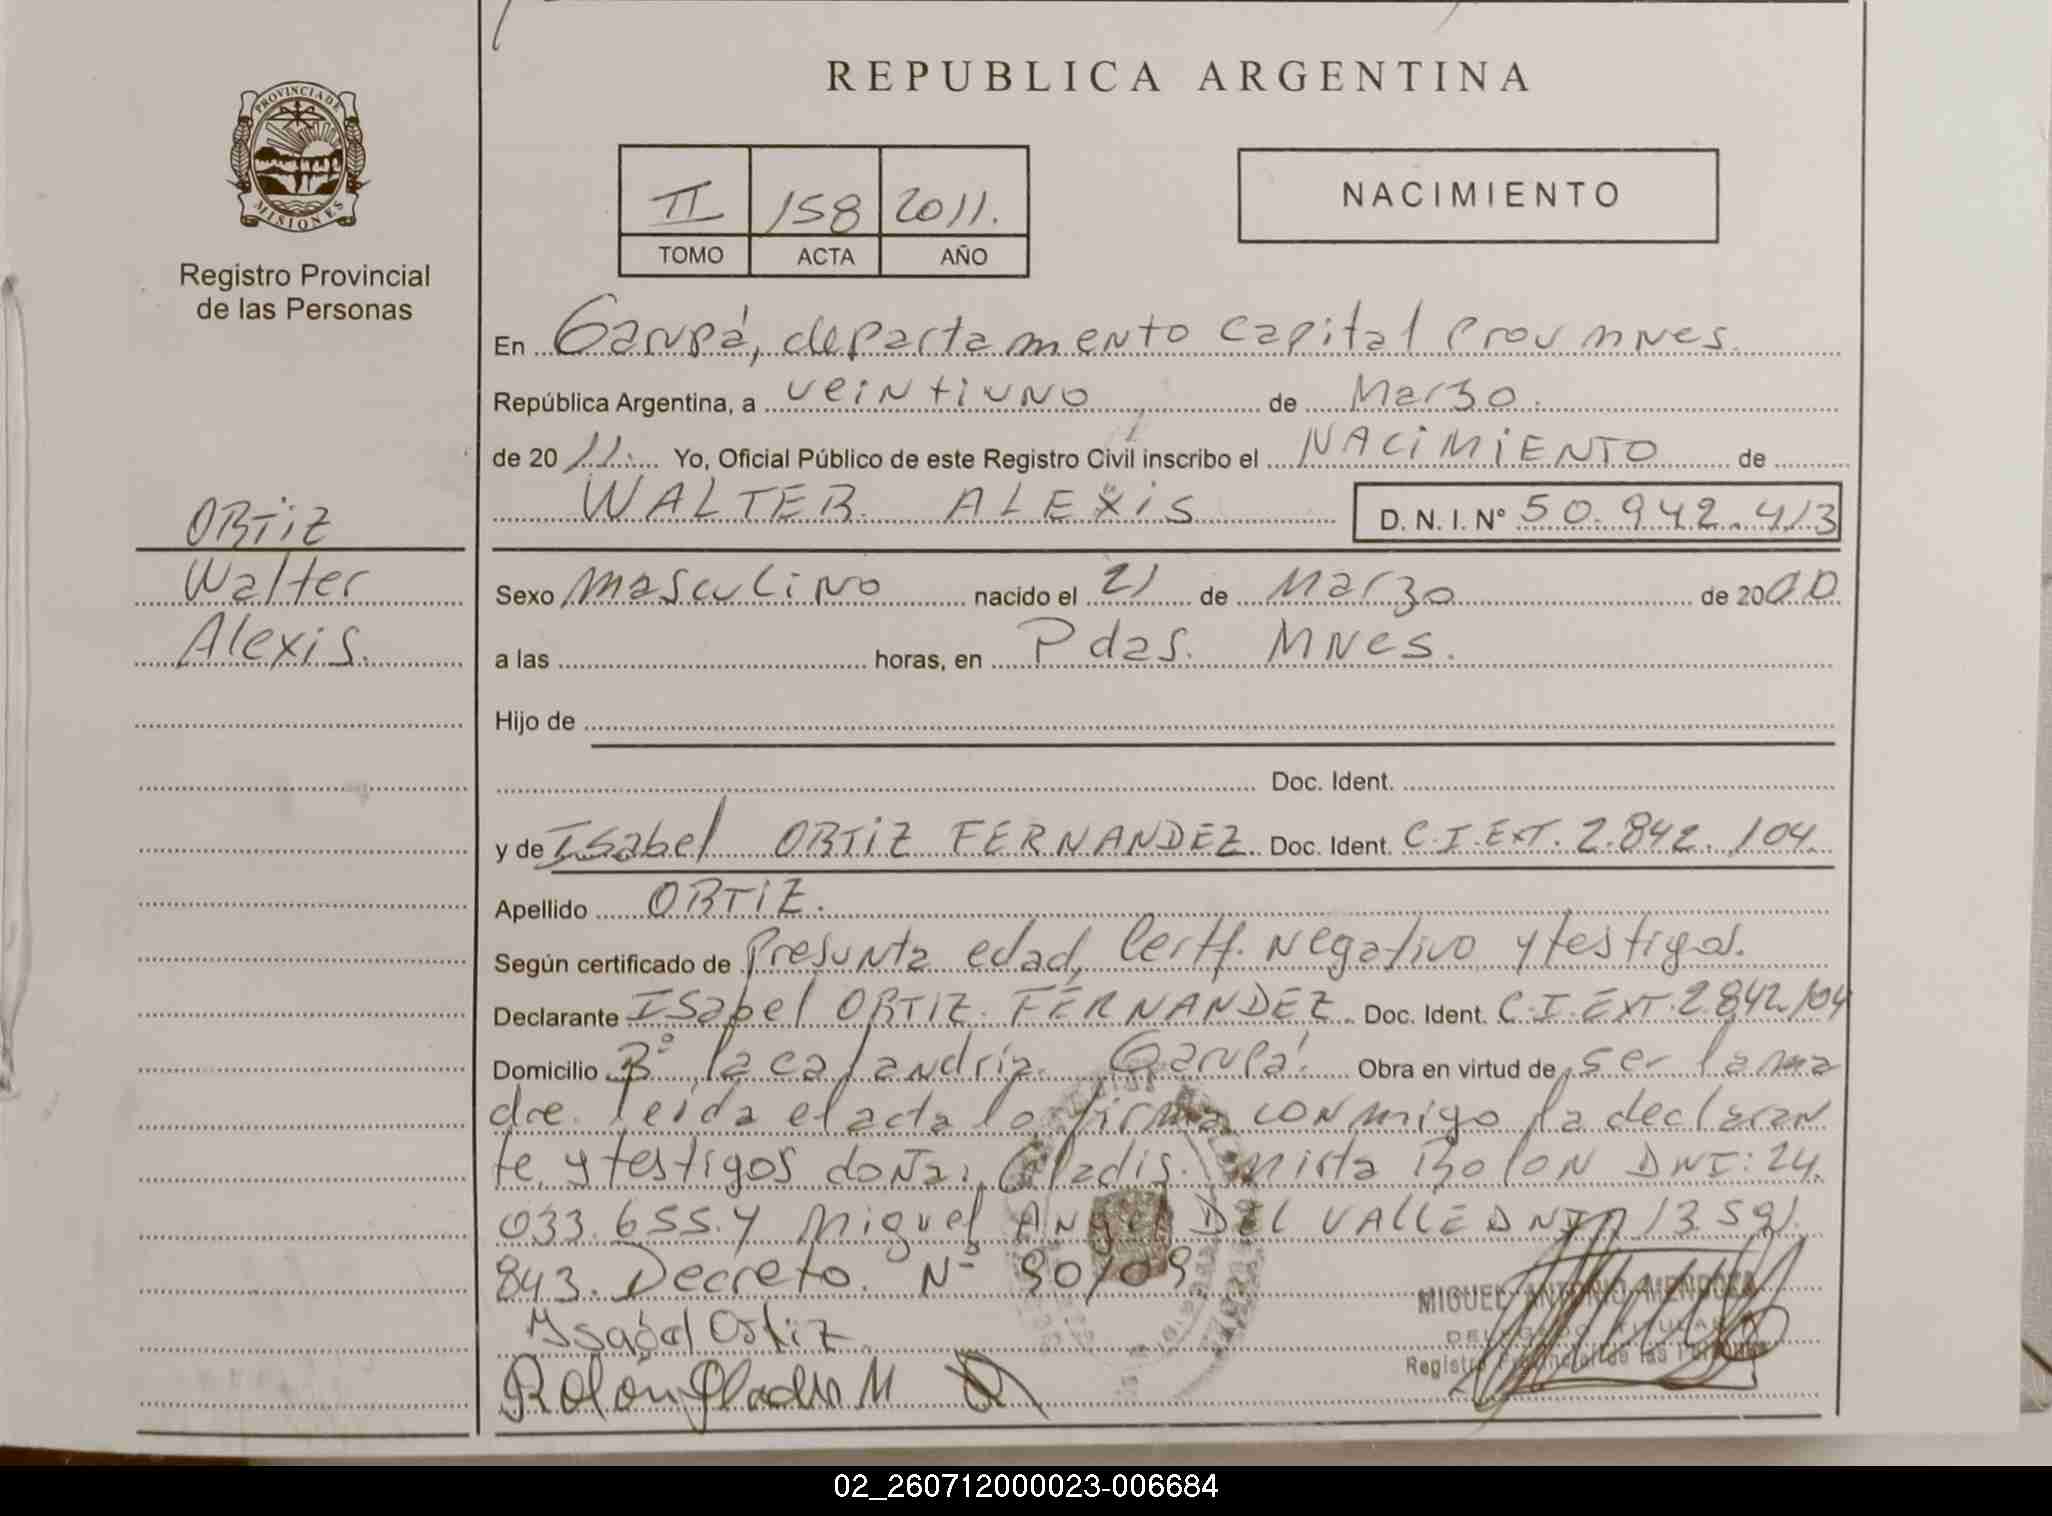 REPUBLICA ARGENTINA
PROVINCIA DE
MISIONES
Registro Provincial
de las Personas
II 158 2011.
TOMO ACTA AÑO
NACIMIENTO
En Garupá, departamento Capital Prov mnes.
República Argentina, a veintiuno de Marzo.
de 2011. Yo, Oficial Público de este Registro Civil inscribo el NACIMIENTO de
WALTER ALEXIS D. N. I. Nº 50.942.413
ORTIZ
Walter
Alexis.
Sexo masculino nacido el 21 de Marzo de 2000
a las horas, en Pdas. MNes.
Hijo de
Doc. Ident.
y de Isabel ORTIZ FERNANDEZ. Doc. Ident. C.I.EXT. 2.842.104
Apellido ORTIZ.
Según certificado de Presunta edad, Certf. Negativo y testigos.
Declarante Isabel ORTIZ FERNANDEZ. Doc. Ident. C.I.EXT.2.842.104
Domicilio Bº la calandria. Garupá. Obra en virtud de ser la ma
dre. leida el acta la firma conmigo la declaran
te y testigos doña: Gladis. Mirta Rolon DNI: 24.
033.655. y Miguel Angel DEL VALLE DNI 13.591.
843. Decreto. Nº 90/09
Isabel Ortiz
MIGUEL ANTONIO MENDOZA
DELEGADO TITULAR
Registro Provincial de las Personas
Rolón Gladis M
02_260712000023-006684